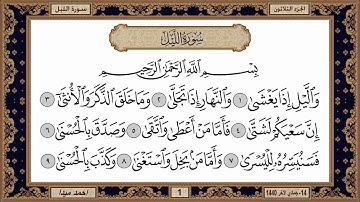 الجزء الثلاثون
سورة الليل
سُورَةُ اللَّيْلِ
بِسْمِ اللَّهِ الرَّحْمَٰنِ الرَّحِيمِ
وَاللَّيْلِ إِذَا يَغْشَىٰ ١ وَالنَّهَارِ إِذَا تَجَلَّىٰ ٢ وَمَا خَلَقَ الذَّكَرَ وَالْأُنثَىٰ ٣
إِنَّ سَعْيَكُمْ لَشَتَّىٰ ٤ فَأَمَّا مَنْ أَعْطَىٰ وَاتَّقَىٰ ٥ وَصَدَّقَ بِالْحُسْنَىٰ ٦
فَسَنُيَسِّرُهُ لِلْيُسْرَىٰ ٧ وَأَمَّا مَن بَخِلَ وَاسْتَغْنَىٰ ٨ وَكَذَّبَ بِالْحُسْنَىٰ ٩
1440
1